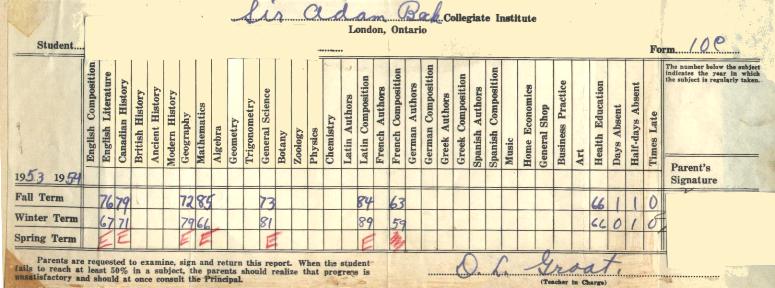 Sir Adam Beck Collegiate Institute
London, Ontario
Student
Form 10E
The number below the subject
indicates the year in which
the subject is regularly taken.
English Composition
English Literature
Canadian History
British History
Ancient History
Modern History
Geography
Mathematics
Algebra
Geometry
Trigonometry
General Science
Botany
Zoology
Physics
Chemistry
Latin Authors
Latin Composition
French Authors
French Composition
German Authors
German Composition
Greek Authors
Greek Composition
Spanish Authors
Spanish Composition
Music
Home Economics
General Shop
Business Practice
Art
Health Education
Days Absent
Half-days Absent
Times Late
Parent's
Signature
1953 1954
Fall Term 76 79 72 85 73 84 63 66 1 1 0
Winter Term 67 71 79 66 81 89 59 66 0 1 0
Spring Term E E E E E E
Parents are requested to examine, sign and return this report. When the student
fails to reach at least 50% in a subject, the parents should realize that progress is
unsatisfactory and should at once consult the Principal.
D. L. Groat.
(Teacher in Charge)